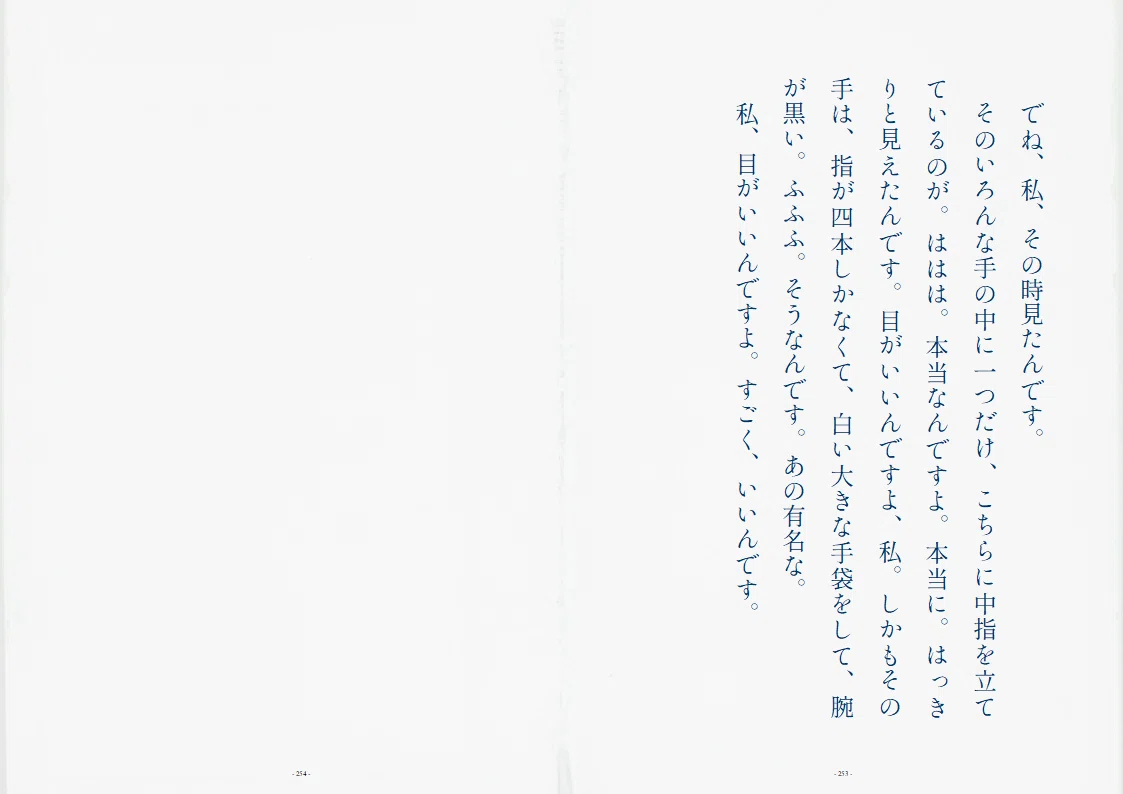 でね、私、その時見たんです。
そのいろんな手の中に一つだけ、こちらに中指を立て
ているのが。ははは。本当なんですよ。本当に。はっき
りと見えたんです。目がいいんですよ、私。しかもその
手は、指が四本しかなくて、白い大きな手袋をして、腕
が黒い。ふふふ。そうなんです。あの有名な。
私、目がいいんですよ。すごく、いいんです。
- 253 -
- 254 -